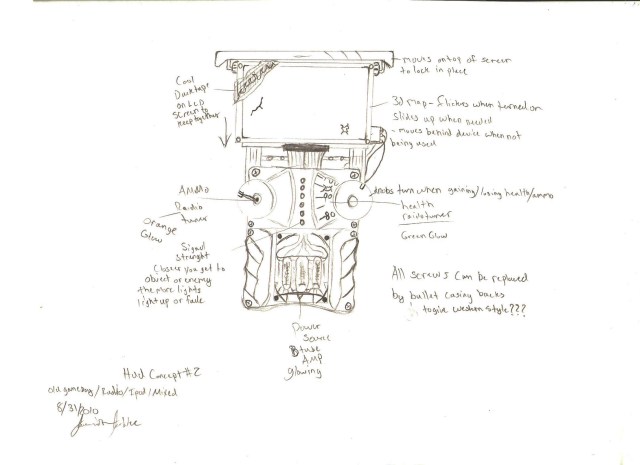 moves on top of screen
to lock in place
Cool
Ducktape
on LCD
screen to
keep together
3d map - flickers when turned on
slides up when needed
- moves behind device when not
being used
Ammo
Radio
tuner
Orange
Glow
knobs turn when gaining/losing health/ammo
health
radio tuner
Green Glow
Signal
strenght
Closer you get to
object or enemy
the more lights
light up or fade
All screws can be replaced
by bullet casing backs
to give western style???
Power
Source
tube
AMP
glowing
Hud Concept #2
old gameboy/Raddio/Ipod/Mixed
8/31/2010